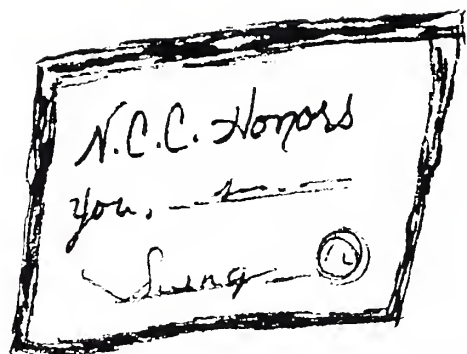 N.C.C. Honors
you,